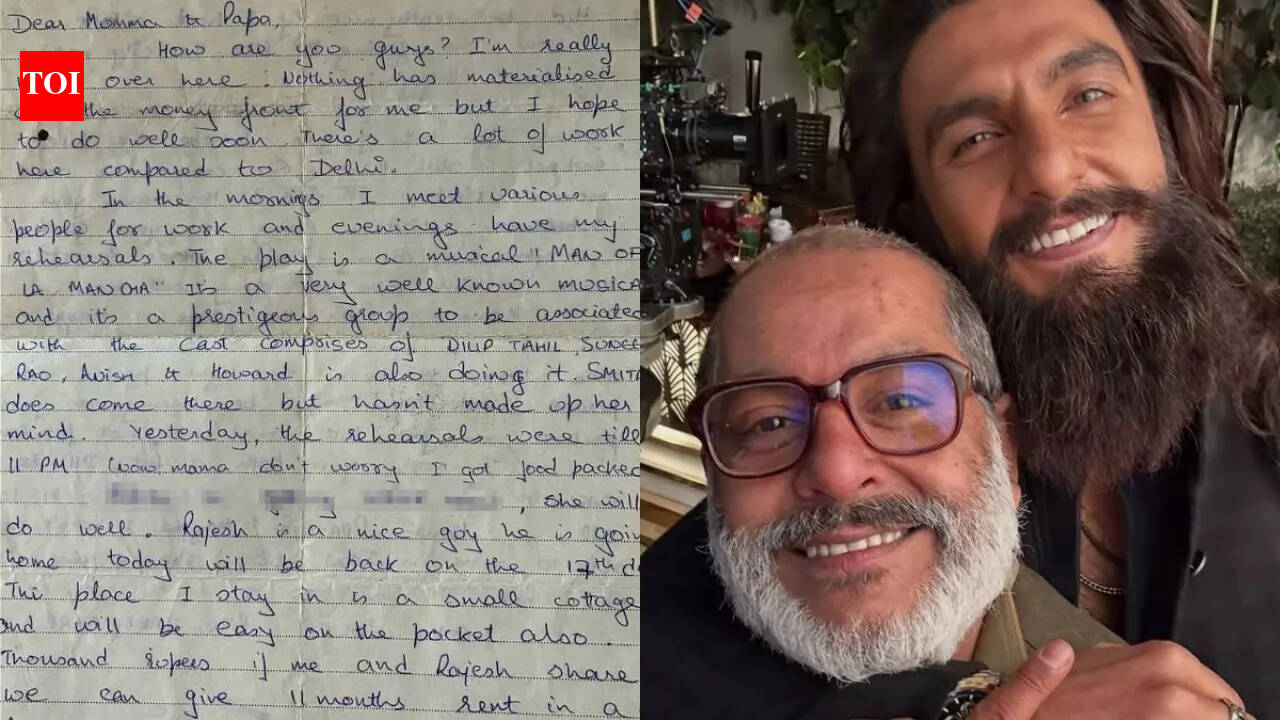 Dear Momma & Papa,
How are you guys? I'm really
TOI
over here. Nothing has materialised
the money front for me but I hope
to do well soon There's a lot of work
here compared to Delhi.
In the mornings I meet various
people for work and evenings have my
rehearsals. The play is a musical "MAN OF
LA MANCHA" It's a very well known musica
and it's a prestigeous group to be associated
with the cast comprises of DILIP TAHIL, SUNEE
RAO, Avish & Howard is also doing it. SMITA
does come there but hasn't made up her
mind. Yesterday, the rehearsals were till
11 PM mama don't worry I got food packed
, she will
do well. Rajesh is a nice guy he is goin
home today will be back on the 17th
The place I stay in is a small cottage
and will be easy on the pocket also.
Thousand rupees if me and Rajesh share
we can give 11 months rent in a